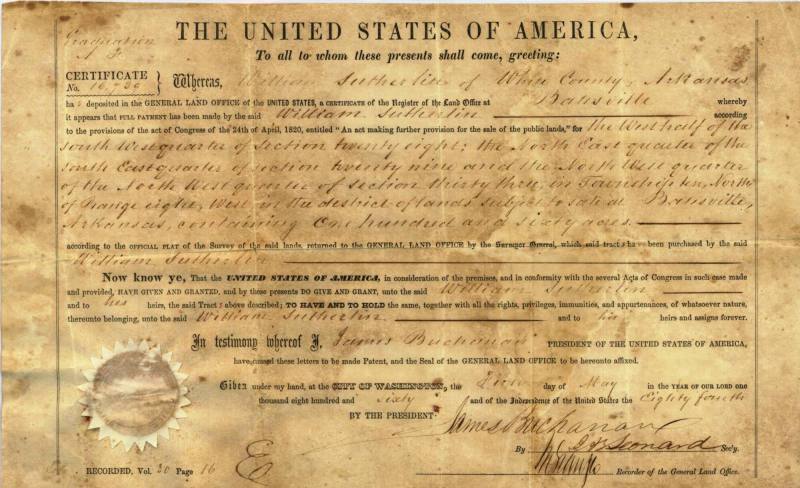 THE UNITED STATES OF AMERICA,
Graduation
To all to whom these presents shall come, greeting:
CERTIFICATE
No. 16,730
Whereas, William Sutherlin of White County, Arkansas
ha s deposited in the GENERAL LAND OFFICE of the UNITED STATES, a CERTIFICATE of the Register of the Land Office at Batesville whereby
it appears that FULL PAYMENT has been made by the said William Sutherlin according
to the provisions of the act of Congress of the 24th of April, 1820, entitled "An act making further provision for the sale of the public lands," for the West half of the
South West quarter of section twenty eight; the North East quarter of the
South East quarter of section twenty nine and the North West quarter
of the North West quarter of section thirty three, in Township ten, North
of Range eight, West, in the district of lands subject to sale at Batesville,
Arkansas, containing One hundred and sixty acres.
according to the OFFICIAL PLAT of the Survey of the said lands, returned to the GENERAL LAND OFFICE by the Surveyor General, which said tract s have been purchased by the said
William Sutherlin
Now know ye, That the UNITED STATES OF AMERICA, in consideration of the premises, and in conformity with the several Acts of Congress in such case made
and provided, HAVE GIVEN AND GRANTED, and by these presents DO GIVE AND GRANT, unto the said William Sutherlin
and to his heirs, the said Tract s above described; TO HAVE AND TO HOLD the same, together with all the rights, privileges, immunities, and appurtenances, of whatsoever nature,
thereunto belonging, unto the said William Sutherlin and to his heirs and assigns forever.
In testimony whereof I, James Buchanan PRESIDENT OF THE UNITED STATES OF AMERICA,
have caused these letters to be made Patent, and the Seal of the GENERAL LAND OFFICE to be hereunto affixed.
Given under my hand, at the CITY OF WASHINGTON, the first day of May in the YEAR OF OUR LORD one
thousand eight hundred and sixty and of the Independence of the United States the Eighty fourth
BY THE PRESIDENT James Buchanan
By J. B. Leonard Sec'y.
RECORDED, Vol. 20 Page 16 E
Recorder of the General Land Office.